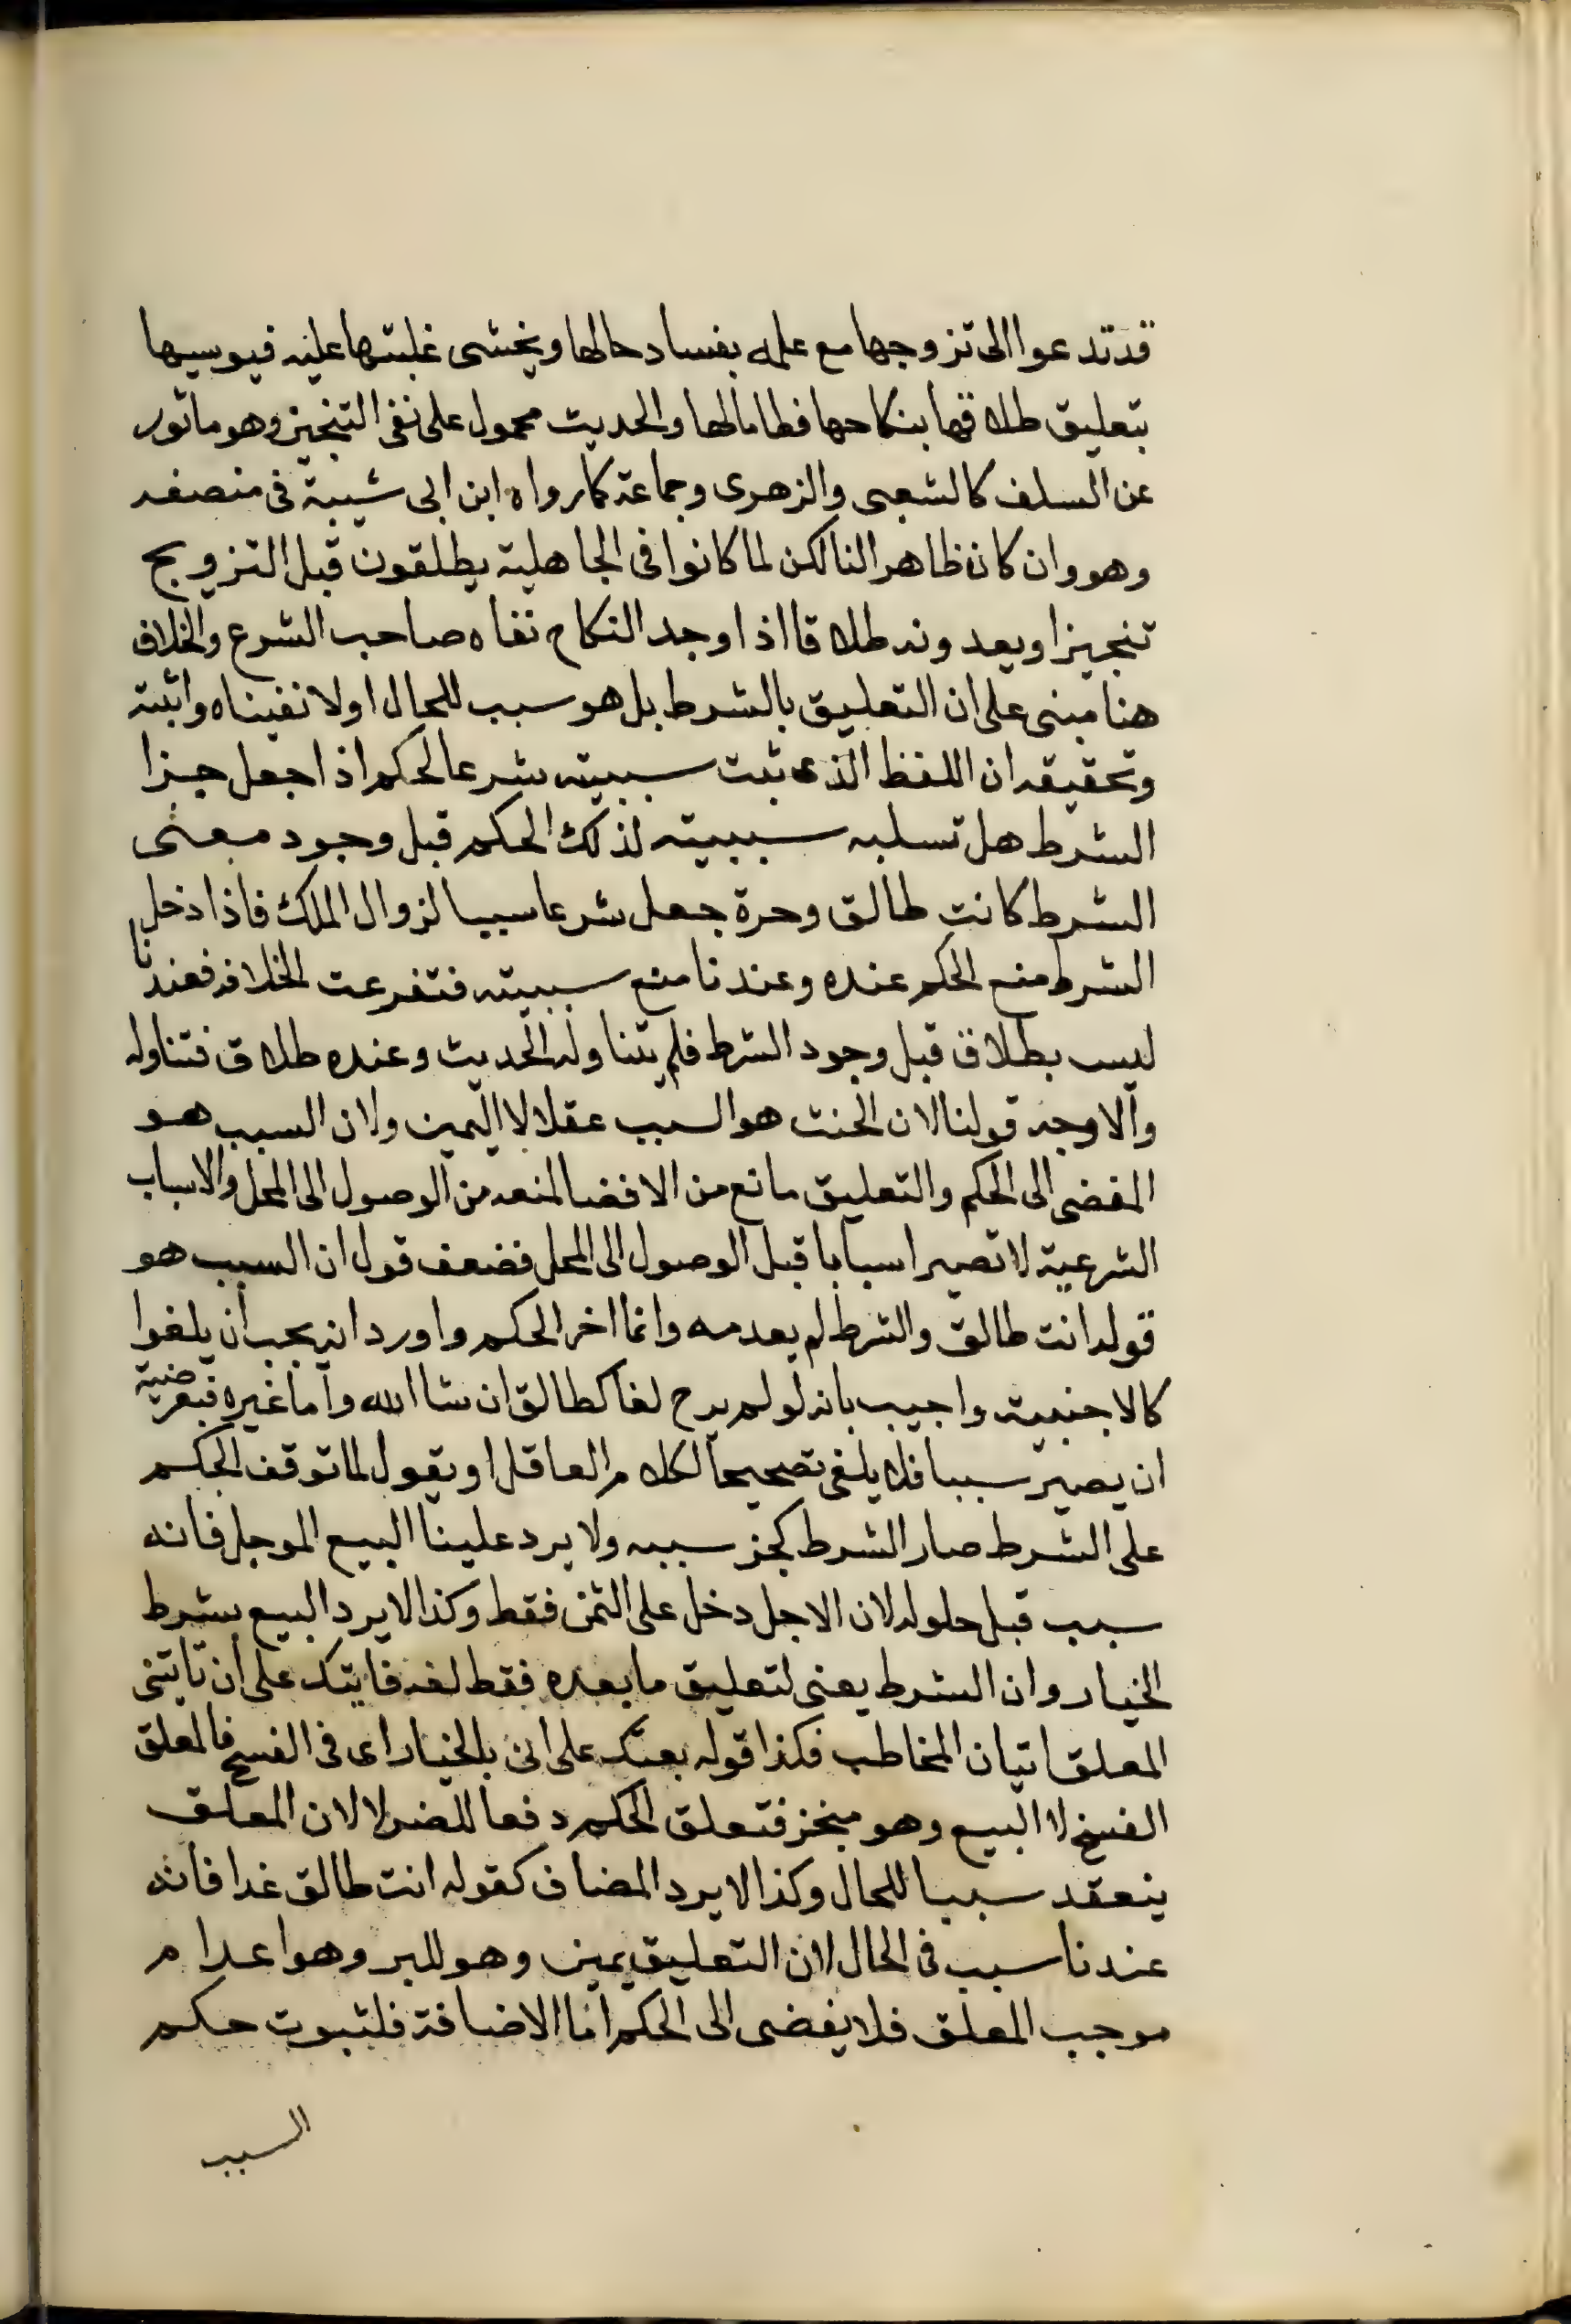 قد تدعوا الى تزوجها مع علمه بفساد حالها ويخشى غلبتها عليه فيوسيها
بتعليق طلاقها بنكاحها فطامالها والحديث محمول على نفى التنجيز وهو ماثور
عن السلف كالشعبى والزهرى وجماعة كما رواه ابن ابى شيبة فى منصفه
وهو وان كان ظاهر النا لكن لما كانوا فى الجاهلية يطلقون قبل التزويج
تنجيزا ويعدونه طلاقا اذا وجد النكاح نفاه صاحب الشرع والخلاف
هنا مبنى على ان التعليق بالشرط بل هو سبب للحال اولا نفيناه واثبته
وتحقيقه ان اللفظ الذى ثبت سببيته شرعا لحكم اذا جعل جزا
الشرط هل تسلبه سببيته لذلك الحكم قبل وجود معنى
الشرط كانت طالق وحرة جعل شرعا سببا لزوال الملك فاذا دخل
الشرط منع الحكم عنده وعندنا منع سببيته فتفرعت الخلافه فعندنا
ليس بطلاق قبل وجود الشرط فلم يتناوله الحديث وعنده طلاق فتناوله
والاوجه قولنا لان الحنث هو السبب عقلا لا اليمين ولان السبب هو
المفضى الى الحكم والتعليق مانع من الافضا لمنعه من الوصول الى المحل والاسباب
الشرعية لا تصير اسبابا قبل الوصول الى المحل فضعف قول ان السبب هو
قوله انت طالق والشرط لم يعدمه وانما اخر الحكم واورد انه يجب ان يلغوا
كالاجنبية واجيب بانه لو لم يرج لغا كطالق ان شا الله واما غيره فبعرضية
ان يصير سببا فلا يلغى تصحيحا لكلام العاقل او يقول لما توقف الحكم
على الشرط صار الشرط كجز سببه ولا يرد علينا البيع الموجل فانه
سبب قبل حلوله لان الاجل دخل على الثمن فقط وكذا لا يرد البيع بشرط
الخيار وان الشرط يعنى لتعليق ما بعده فقط لغه فايتك على ان تاتنى
المعلق اتيان المخاطب فكذا قوله بعتك على انى بالخيار اى فى الفسخ فالمعلق
الفسخ لا البيع وهو منجز فتعلق الحكم دفعا للضرر لا لان المعلق
ينعقد سببا للحال وكذا لا يرد المضاف كقوله انت طالق غدا فانه
عندنا سبب فى الحال لان التعليق يمين وهو للبر وهو اعدام
موجب المعلق فلا يفضى الى الحكم اما الاضافة فلثبوت حكم
السبب